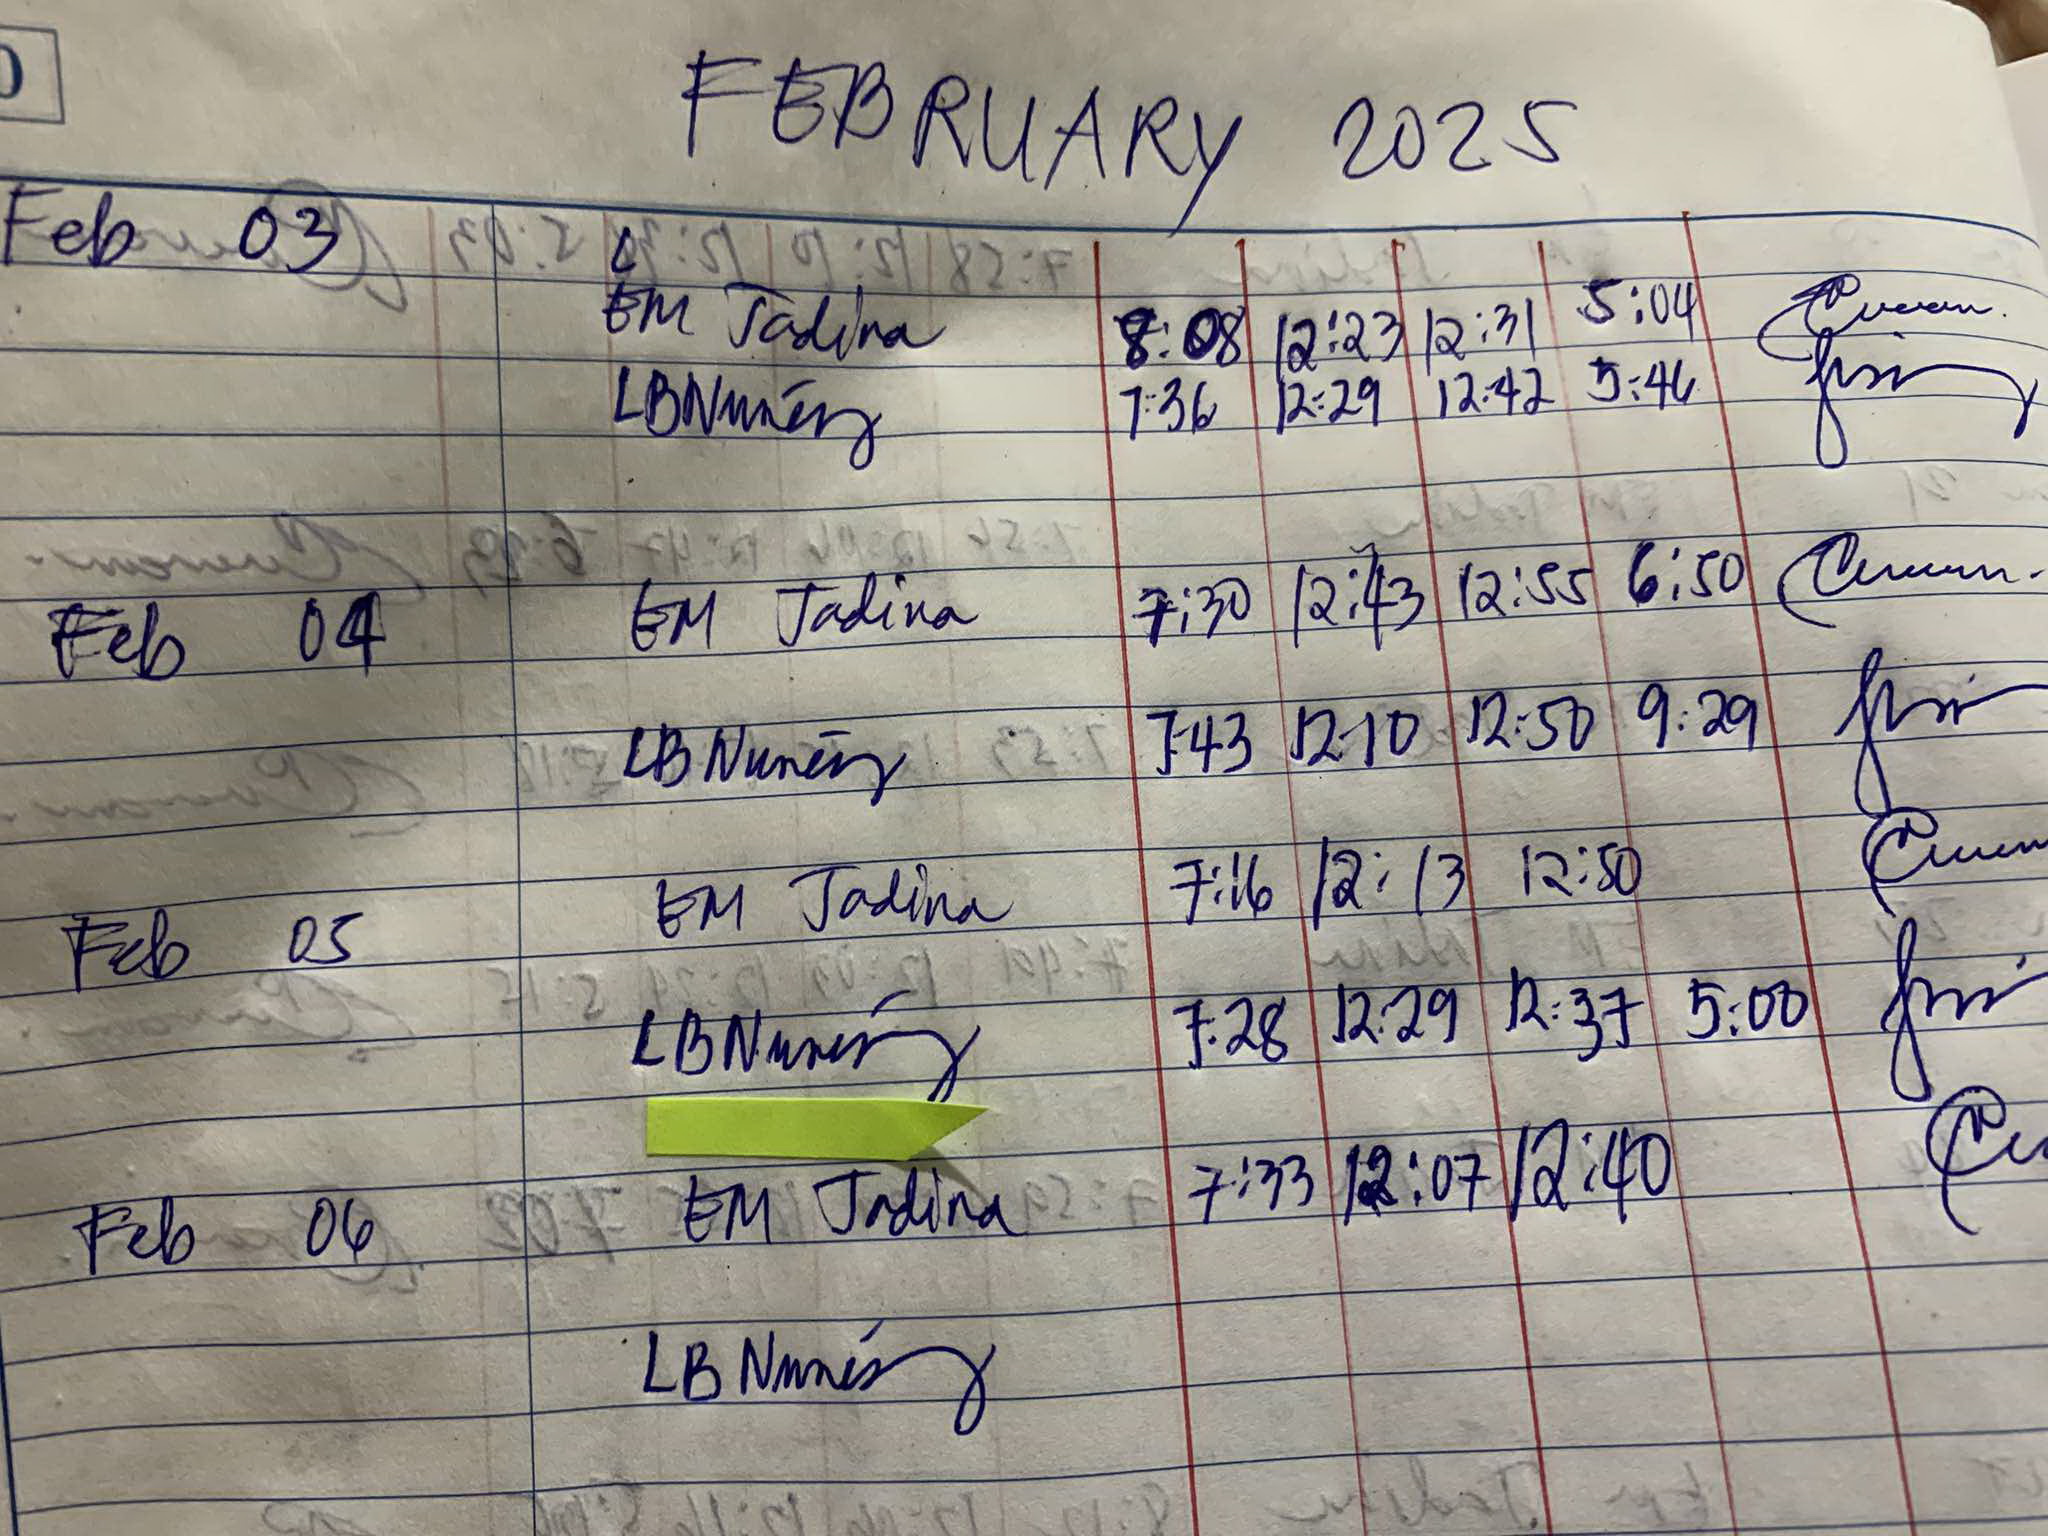 FEBRUARY 2025
Feb 03
EM Jadina 8:08 12:23 12:31 5:04
LBNuñez 7:36 12:29 12:42 5:46
Feb 04 EM Jadina 7:30 12:43 12:55 6:50
LBNuñez 7:43 12:10 12:50 9:29
Feb 05 EM Jadina 7:16 12:13 12:50
LBNuñez 7:28 12:29 12:37 5:00
Feb 06 EM Jadina 7:33 12:07 12:40
LBNuñez